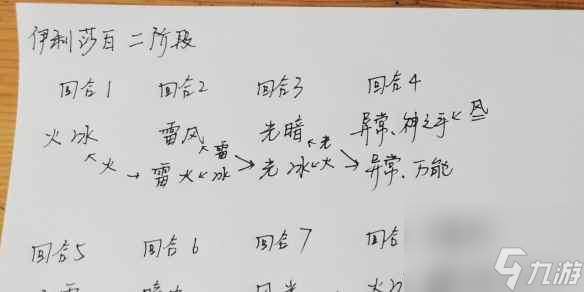 伊利莎白 二阶段
回合1 回合2 回合3 回合4
火冰 雷风 光暗 异常、神之手 风
火 雷 光
雷 火 冰 光 冰 火 异常、万能
回合5 回合6 回合7 回合
九游